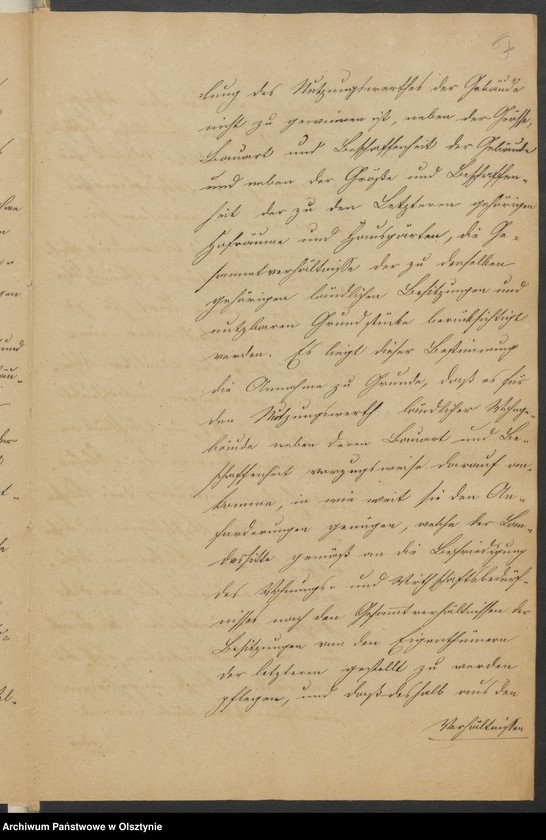 lung des Nutzungswerthes der Gebäude
nicht zu gewinnen ist, neben der Größe,
Bauart und Beschaffenheit der Gebäude
und neben der Größe und Beschaffen-
heit der zu den Letzteren gehörigen
Hofräume und Hausgärten, die Ge-
sammtverhältnisse der zu denselben
gehörigen ländlichen Besitzungen und
nutzbaren Grundstücke berücksichtigt
werden. Es liegt dieser Bestimmung
die Annahme zu Grunde, daß es für
den Nutzungswerth ländlicher Wohnge-
bäude neben deren Bauart und Be-
schaffenheit vorzugsweise darauf an-
komme, in wie weit sie den An-
forderungen genügen, welche der Lan-
dessitte gemäß an die Befriedigung
des Wohnungs- und Wirthschaftsbedürf-
nisses nach den Gesammtverhältnissen der
Besitzungen von den Eigenthümern
der letzteren gestellt zu werden
pflegen, und daß deshalb aus den
Verhältnissen
Archiwum Państwowe w Olsztynie